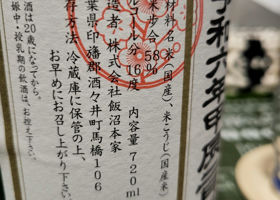 和六年甲辰
材料名 米(国産)、米こうじ(国産米)
米歩合 58%
コール分 16度 内容量 720ml
造者 株式会社飯沼本家
葉県印旛郡酒々井町馬橋106
存方法 冷蔵庫に保管の上、
お早めにお召し上がり下さい
酒は20歳になってから。
娠中・授乳期の飲酒は、
お控え下さい